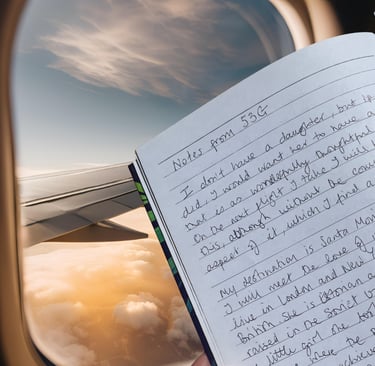 Notes from 53G
I don't have a daughter, but if I
did, I would want her to have a
that is as wonderfully thoughtful
On the next flight I take I will
this, although without the
aspect of it which I find a
My destination is Santa Mon
I will meet the love of
live in London and New
British she is German a
raised in the Soviet U
little girl she